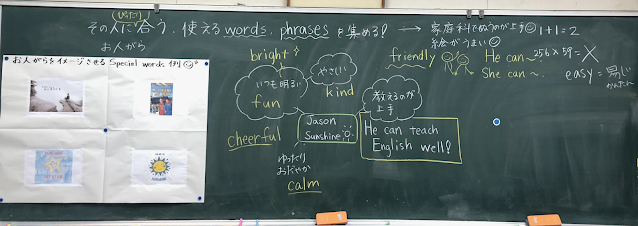 ぴったり
その人に合う、使える words, phrases を集める!
お人がら
→ 家庭科でぬうのが上手
絵がうまい
1+1=2
He can ~.
She can ~.
256×59=×
easy=易しい
かんたん
お人がらをイメージさせる Special words 例
bright
いつも明るい
fun
やさしい
kind
friendly
cheerful
教えるのが
上手
Jason
Sunshine
He can teach
English well!
ゆったり
おだやか
calm